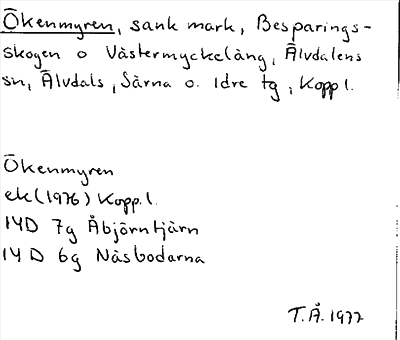 Ökenmyren, sank mark, Besparings-
skogen o Västermyckeläng, Älvdalens
sn, Älvdals, Särna o. Idre tg, Kopp l.
Ökenmyren
ek (1976) Kopp. l.
14D 7g Åbjörntjärn
14D 6g Näsbodarna
T.Å. 1977